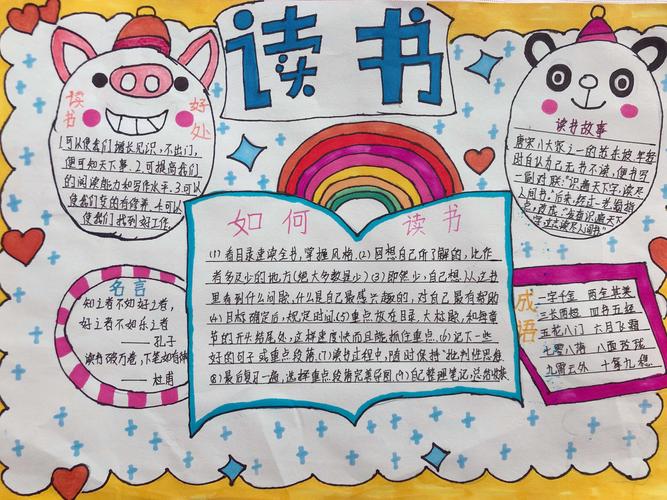 读书
读书
好处
1.可以使我们增长见识,不出门,
便可知天下事.2.可提高我们
的阅读能力和写作水平.3.可以
使我们变的有修养.4.可以
使我们找到好工作.
读书故事
唐宋八大家之一的苏东坡,年轻
时自认为已无书不读,便书写
一副对联:"识遍天下字,读尽
人间书.
名言
知之者不如好之者,
好之者不如乐之者
——孔子
读书破万卷,下笔如有神
——杜甫
如何 读书
(1)看目录速读全书,掌握风格.(2)回想自己所了解的,比作
者多或少的地方(绝大多数是少)(3)即然少,自己想从这书
里看到什么问题,什么是自己最感兴趣的,对自己最有帮助
(4)目标确定后,规定时间(5)重点放在目录,大标题,和每章
节的开头结尾处,这样速度快而且能抓住重点.(6)记下一些
好的句子或重点段落.(7)读书过程中,随时保持"批判性思维
(8)最后复习一遍,选择重点段落完美
(9)自己整理笔记,总结收获.
成语
一字千金 两全其美
三长两短 四书五经
五花八门 六月飞霜
七零八落 八面玲珑
九霄云外 十拿九稳